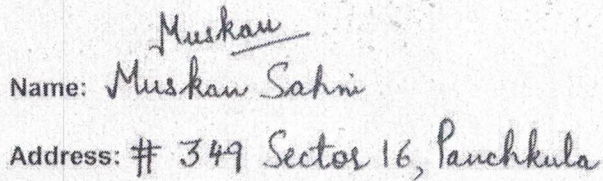 Muskan
Name: Muskan Sahni
Address: # 349 Sector 16, Panchkula